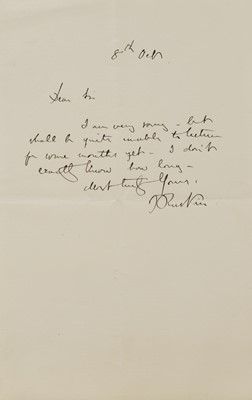 8th Oct
Dear Sir
I am very sorry - but
shall be quite unable to lecture
for some months yet - I don't
exactly know how long -
Most truly Yours,
J Ruskin